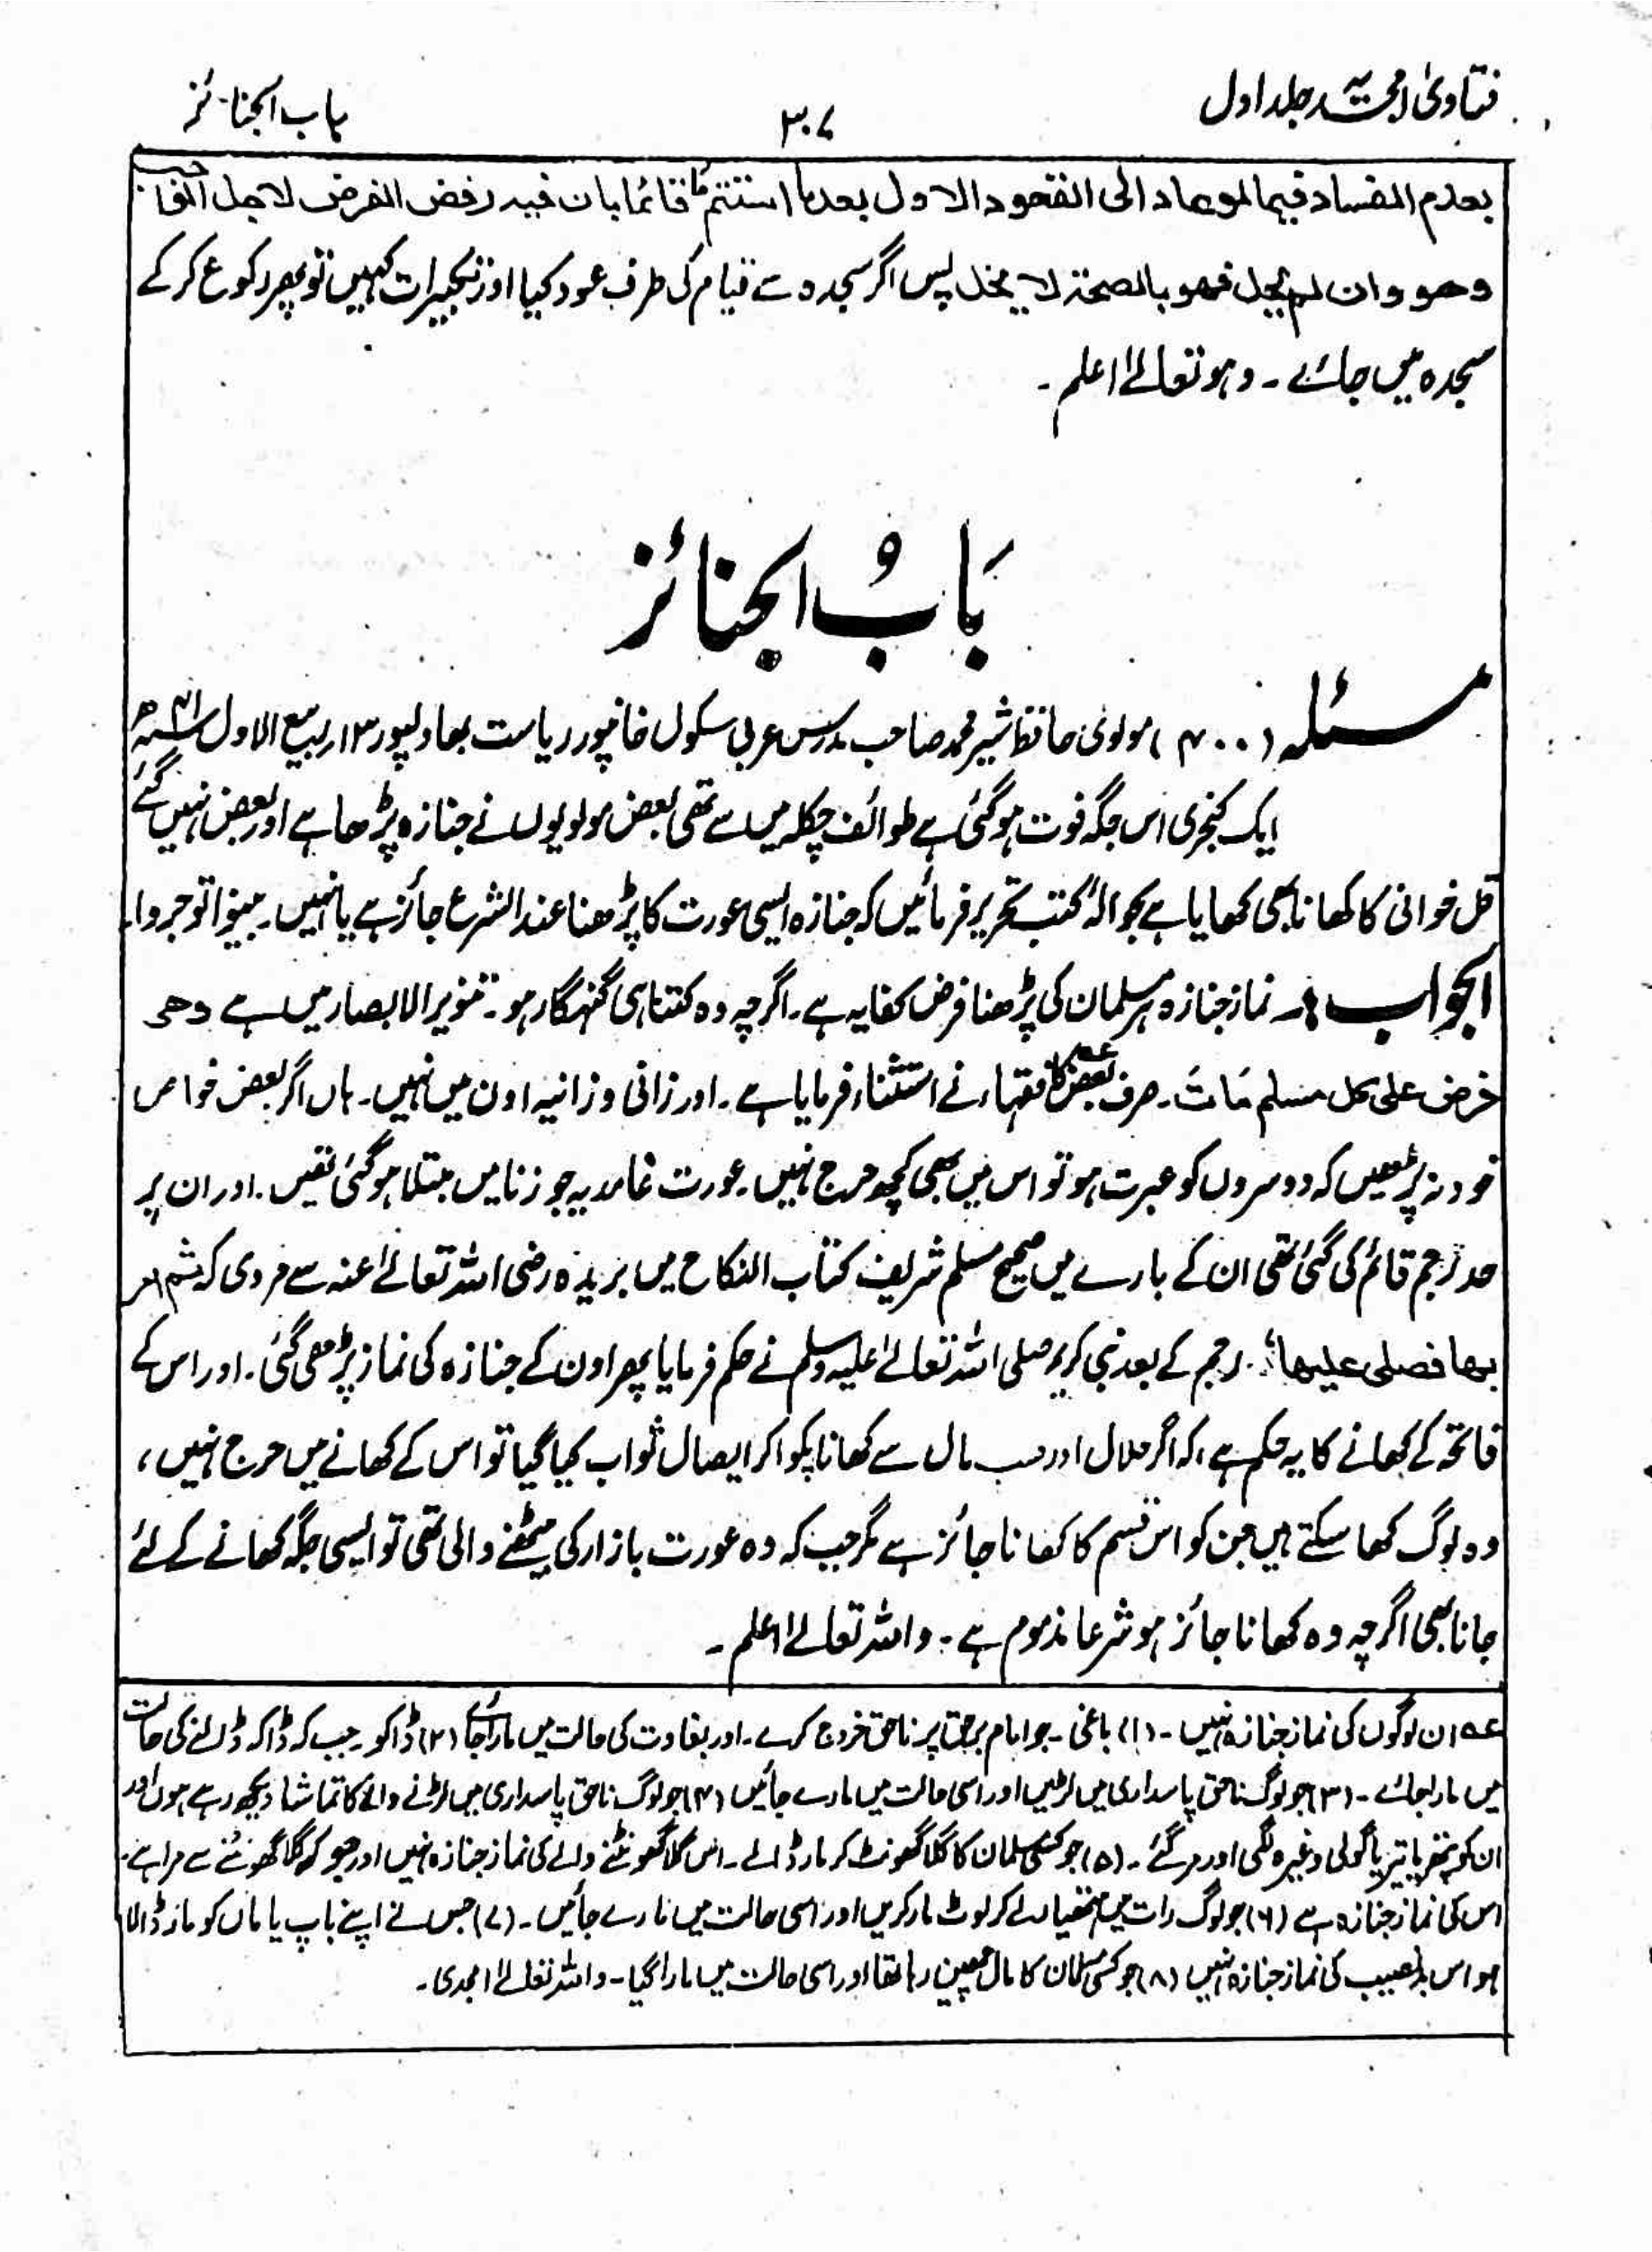 فتاویٰ امجدیہ جلد اول
۳۰۷
باب الجنائز
بعدم الفساد فیما لو عاد الی القعود الاول بعد ما استتم قائما بان فیہ رفض الفرض لاجل الواجب
وھو وان لم یحل فھو بالصحۃ لا یخل پس اگر سجدہ سے قیام کی طرف عود کیا اور تکبیرات کہیں تو پھر رکوع کر کے
سجدہ میں جائے ۔ وہو تعالےٰ اعلم ۔
بَابُ الجنائز
مسئلہ (۴۰۰) مولوی حافظ شیر محمد صاحب مدرس عربی سکول خانپور ریاست بھاولپور ۱۳ ربیع الاول
ایک کنجری اس جگہ فوت ہوگئی ہے طوائف چکلہ میں سے تھی بعض مولویوں نے جنازہ پڑھا ہے اور بعض نہیں گئے
قل خوانی کا کھانا بھی کھایا ہے بحوالۂ کتب تحریر فرمائیں کہ جنازہ ایسی عورت کا پڑھنا عند الشرع جائز ہے یا نہیں ۔ بینوا توجروا ۔
الجواب :۔ نماز جنازہ ہر مسلمان کی پڑھنا فرض کفایہ ہے ۔ اگرچہ وہ کتنا ہی گنہگار ہو ۔ تنویر الابصار میں ہے دھی
فرض علی کل مسلم مَاتَ ۔ صرف بعض کا عہ فقہاء نے استثناء فرمایا ہے ۔ اور زانی و زانیہ اون میں نہیں ۔ ہاں اگر بعض خواص
خود نہ پڑھیں کہ دوسروں کو عبرت ہو تو اس میں بھی کچھ حرج نہیں ۔ عورت غامدیہ جو زنا میں مبتلا ہوگئی تھیں ۔ اور ان پر
حد رجم قائم کی گئی تھی ان کے بارے میں صحیح مسلم شریف کتاب النکاح میں بریدہ رضی اللہ تعالےٰ عنہ سے مروی کہ ثم امر
بھا فصلی علیھا ۔ رجم کے بعد نبی کریم صلی اللہ تعالےٰ علیہ وسلم نے حکم فرمایا پھر اون کے جنازہ کی نماز پڑھی گئی ۔ اور اس کے
فاتحہ کے کھانے کا یہ حکم ہے ، کہ اگر حلال اور مال سے کھانا پکوا کر ایصال ثواب کیا گیا تو اس کے کھانے میں حرج نہیں ،
وہ لوگ کھا سکتے ہیں جن کو اس قسم کا کھانا جائز ہے مگر جب کہ وہ عورت بازار کی بیٹھنے والی تھی تو ایسی جگہ کھانے کے لئے
جانا بھی اگرچہ وہ کھانا جائز ہو شرعا مذموم ہے ۔ واللہ تعالےٰ اعلم ۔
عہ ان لوگوں کی نماز جنازہ نہیں ۔ (۱) باغی ۔ جو امام برحق پر ناحق خروج کرے ۔ اور بغاوت کی حالت میں مارا جائے (۲) ڈاکو ۔ جب کہ ڈاکہ ڈالنے کی حالت
میں مارا جائے ۔ (۳) جو لوگ ناحق پاسداری میں لڑیں اور اسی حالت میں مارے جائیں (۴) جو لوگ ناحق پاسداری میں لڑنے والے کا تماشا دیکھ رہے ہوں اور
ان کو پتھر یا تیر یا گولی وغیرہ لگی اور مر گئے ۔ (۵) جو کسی مسلمان کا گلا گھونٹ کر مار ڈالے ۔ اس گلا گھونٹنے والے کی نماز جنازہ نہیں اور جو کہ گلا گھونٹے سے مرا ہے ،
اس کی نماز جنازہ ہے (۶) جو لوگ رات میں ہتھیار لے کر لوٹ مار کریں اور اسی حالت میں مارے جائیں ۔ (۷) جس نے اپنے باپ یا ماں کو مار ڈالا
ہو اس بدنصیب کی نماز جنازہ نہیں (۸) جو کسی مسلمان کا مال چھین رہا تھا اور اسی حالت میں مارا گیا ۔ واللہ تعالےٰ امجدی ۔